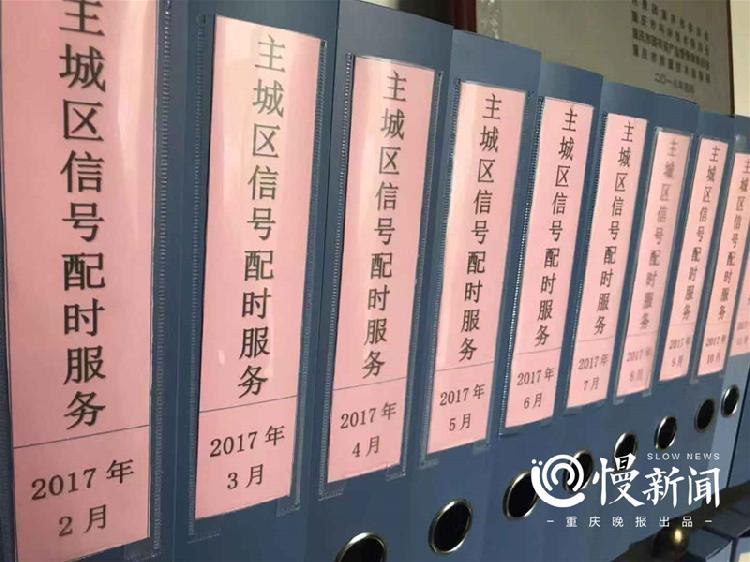 主城区信号配时服务
2017年
2月
主城区信号配时服务
2017年
3月
主城区信号配时服务
2017年
4月
主城区信号配时服务
2017年
5月
主城区信号配时服务
2017年
6月
主城区信号配时服务
2017年
7月
主城区信号配时服务
2017年
8月
主城区信号配时服务
2017年
9月
主城区信号配时服务
2017年
10月
主城区信号配时服务
SLOW NEWS
慢新闻
重庆晚报出品